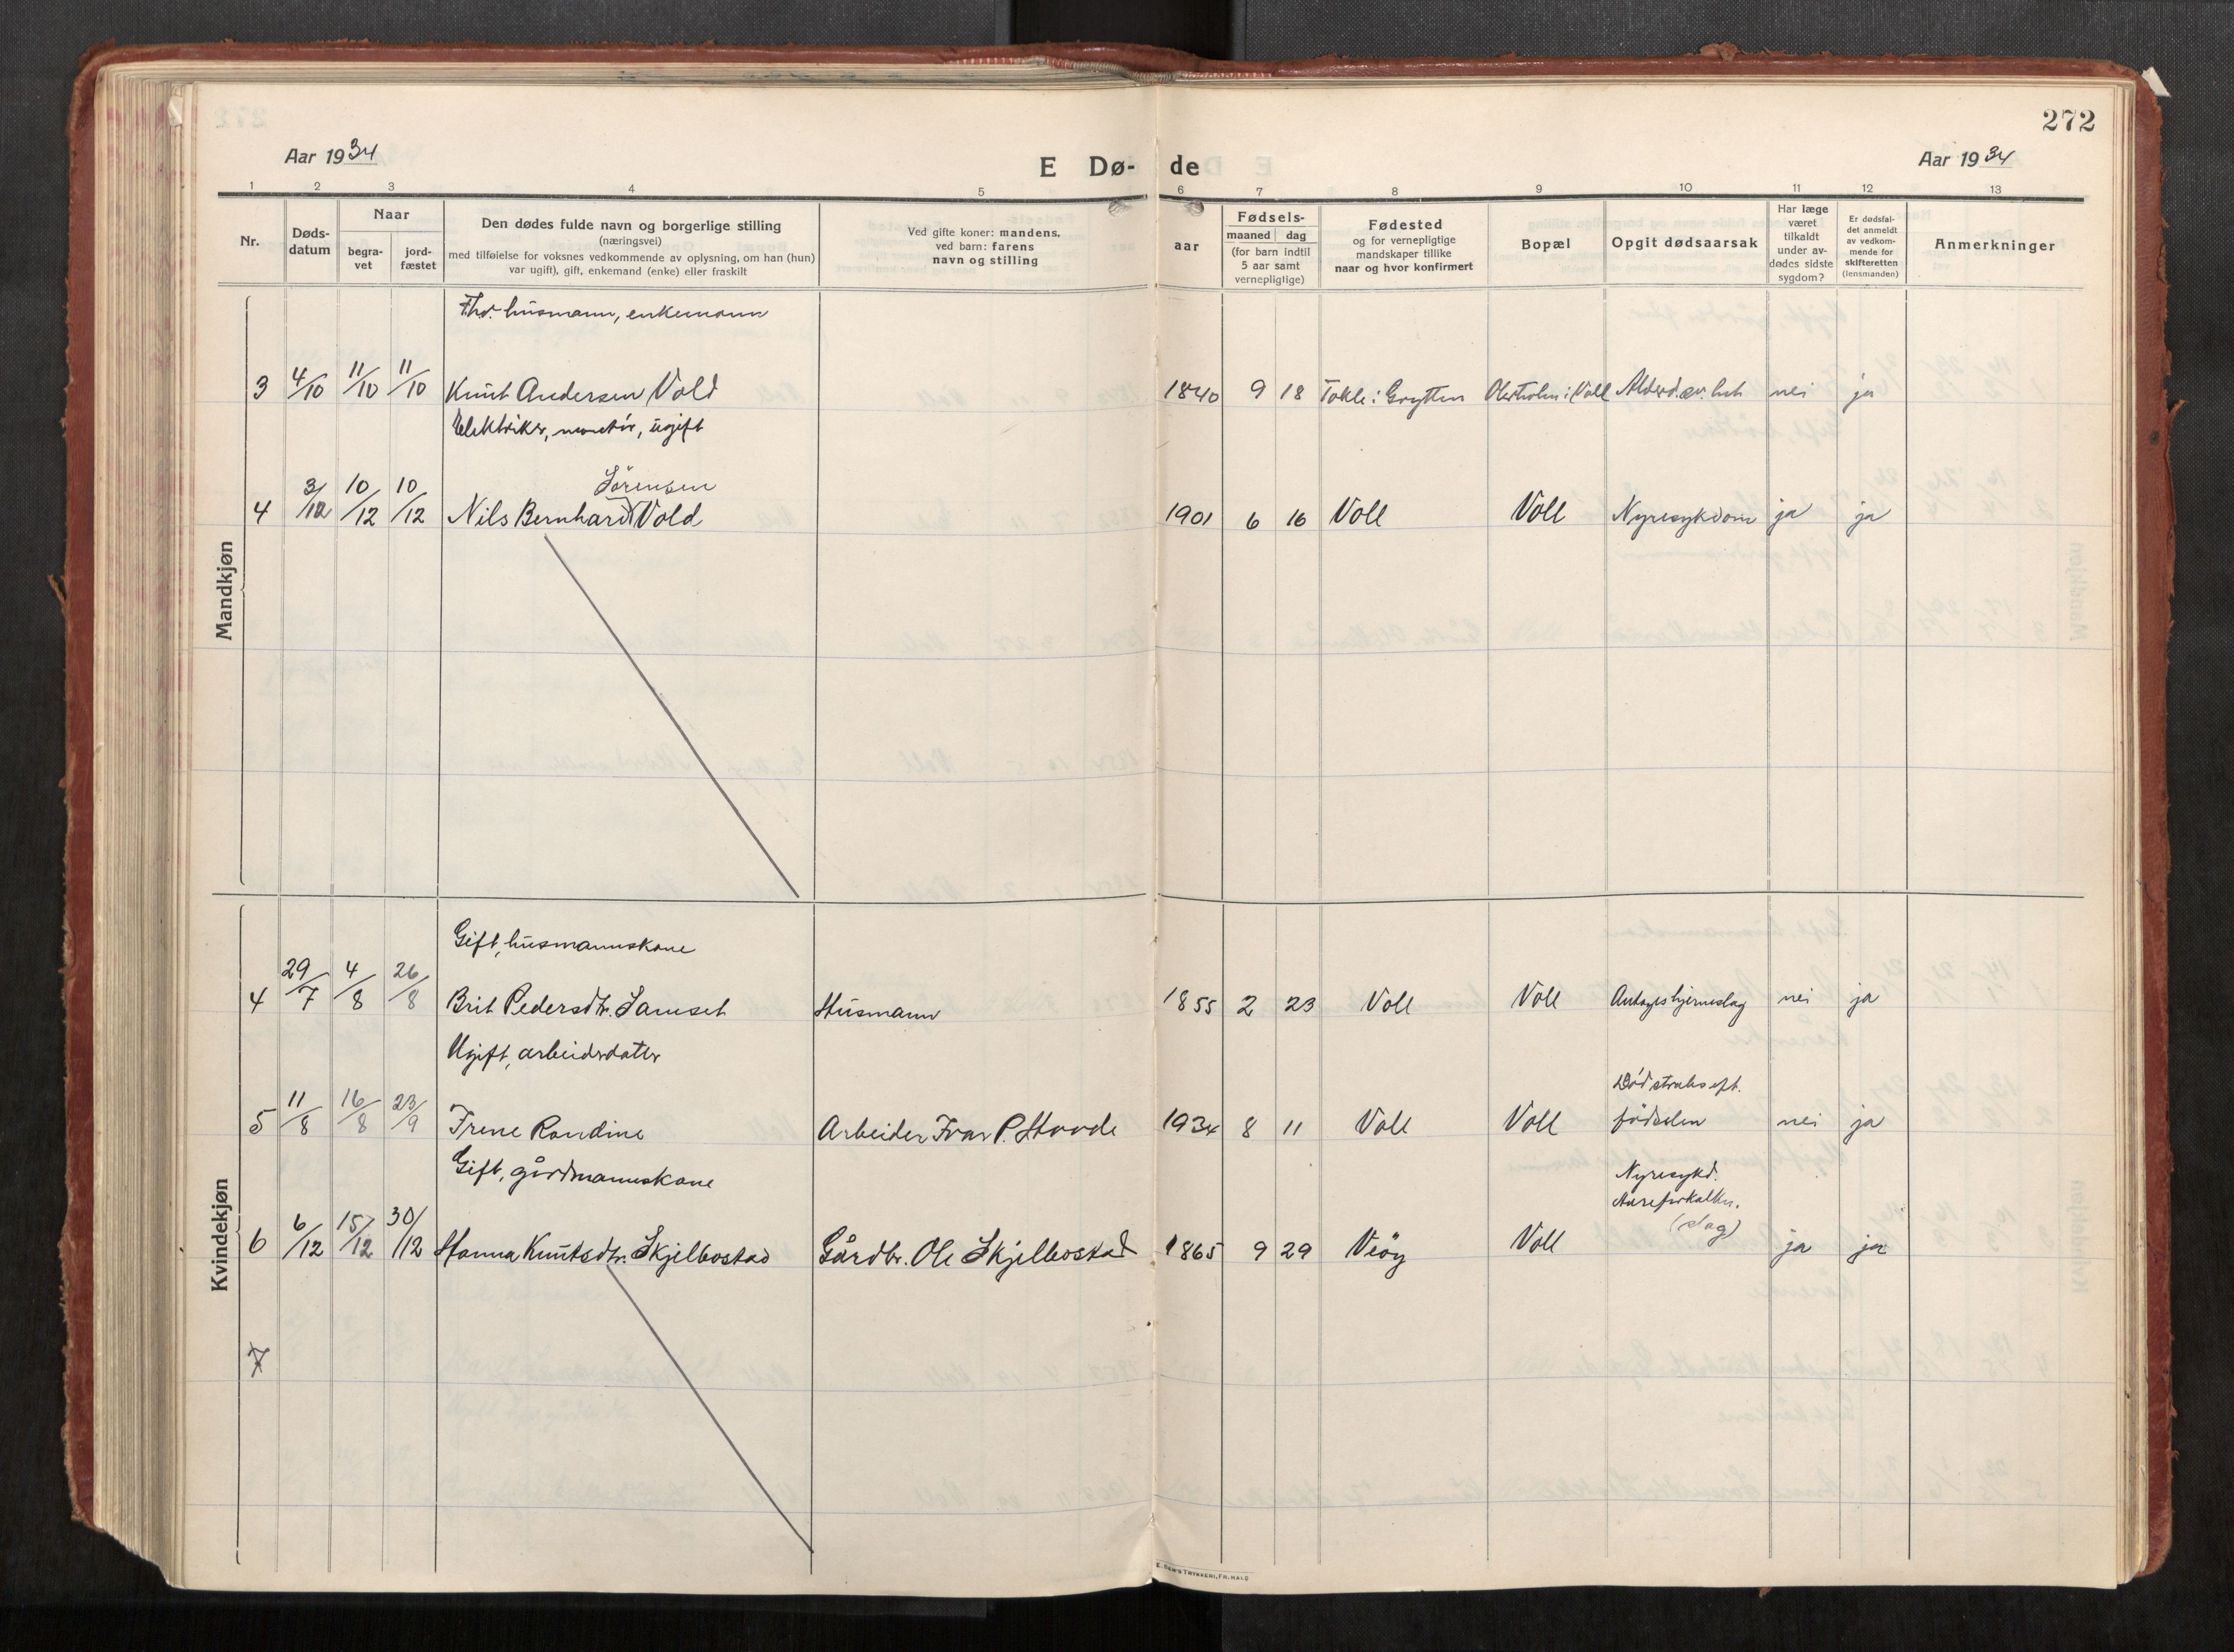 272
Aar 1934
E Dø- de
Aar 1934
1 2 3 4 5 6 7 8 9 10 11 12 13
Nr.
Døds-
datum
Naar
begra-
vet
jord-
fæstet
Den dødes fulde navn og borgerlige stilling
(næringsvei)
med tilføielse for voksnes vedkommende av oplysning, om han (hun)
var ugift), gift, enkemand (enke) eller fraskilt
Ved gifte koner: mandens,
ved barn: farens
navn og stilling
aar
Fødsels-
maaned dag
(for barn indtil
5 aar samt
vernepligtige)
Fødested
og for vernepligtige
mandskaper tillike
naar og hvor konfirmert
Bopæl
Opgit dødsaarsak
Har læge
været
tilkaldt
under av-
dødes sidste
sygdom?
Er dødsfal-
det anmeldt
av vedkom-
mende for
skifteretten
(lensmanden)
Anmerkninger
Mandkjøn
Fhv. husmann, enkemann
3 4/10 11/10 11/10 Knut Andersen Vold 1840 9 18 Tokle i Grytten i Voll nei ja
Elektriker, montør, ugift
Sörensen
4 3/12 10/12 10/12 Nils Bernhard Vold 1901 6 16 Voll Voll Nyresykdom ja ja
Kvindekjøn
Gift, husmannskone
4 29/7 4/8 26/8 Brit Pedersdtr. Samset Husmann 1855 2 23 Voll Voll Antages hjerneslag nei ja
Ugift, arbeiderdatter
Död straks eft.
5 11/8 16/8 23/9 Irene Randine Arbeider Ivar P. Hovde 1934 8 11 Voll Voll födselen nei ja
Gift, gårdmannskone
Nyresykd.
Aareforkalkn.
(slag)
6 6/12 15/12 30/12 Hanna Knutsdtr. Skjelbostad Gårdbr. Ole Skjelbostad 1865 9 29 Veöy Voll ja ja
7
E. SEM'S TRYKKERI, FR.HALD